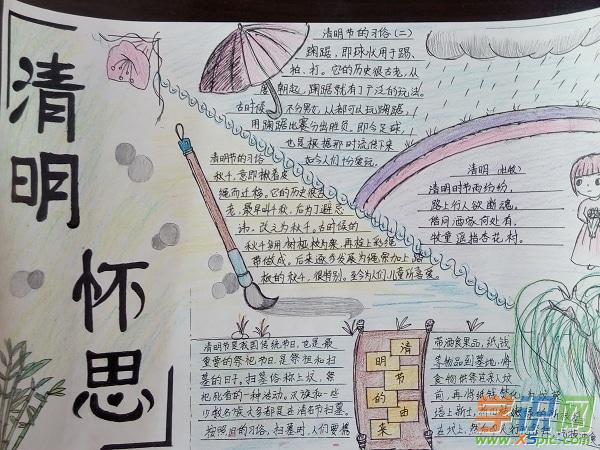 清明
怀思
清明节的习俗(二)
蹴踘,即球状用于踢、
拍、打。它的历史很古老,从
朝起,蹴踘就有了广泛的玩法。
古时候,不分男女,人都可以玩蹴踘,
用蹴踘比赛分出胜负,即今足球,
也是根据那时流传下来
如今人们十分爱玩。
清明节的习俗
秋千,意即揪着皮
绳而迁移。它的历史很古
老,最早叫千秋,后为了避忌
讳,改之为秋千。古时候的
秋千多用树桠枝为架,再拴上彩绳
带做成。后来逐步发展为绳索加上踏
板的秋千,很特别。至今为人们儿童所喜爱。
清明
清明时节雨纷纷,
路上行人欲断魂。
借问酒家何处有,
牧童遥指杏花村。
清明节的由来
清明节是我国传统节日,也是最
重要的祭祀节日,是祭祖和扫
墓的日子。扫墓俗称上坟,祭
祀死者的一种活动。汉族和一些
少数民族大多都是在清明节扫墓。
按照旧的习俗,扫墓时,人们要携
带酒食果品,纸钱
等物品到墓地,将
食物供祭在亲人坟
前,再将纸钱焚化
培上新土
学识网
www.xspic.com